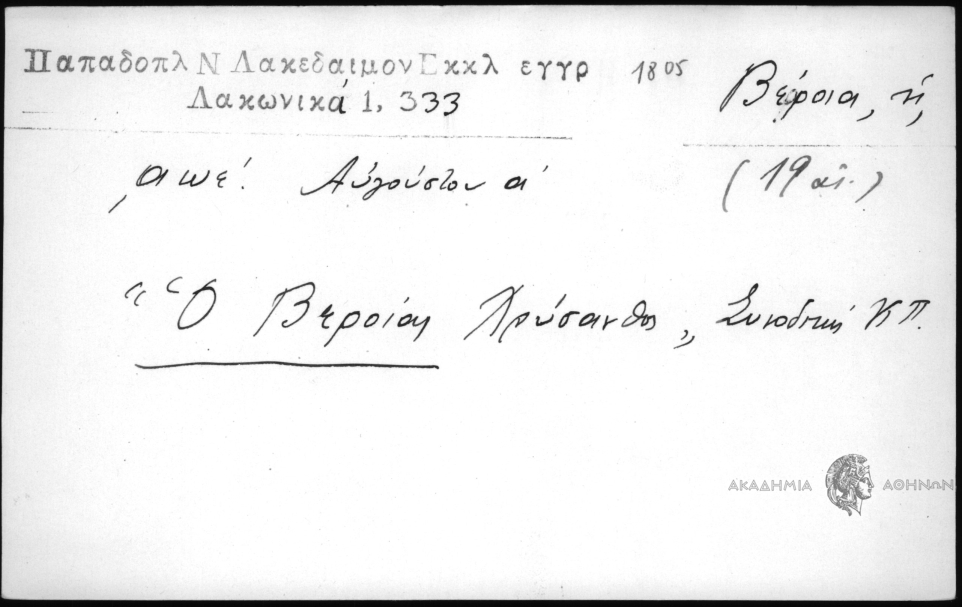 Παπαδοπλ Ν Λακεδαιμον Εκκλ εγγρ 1805
Λακωνικά 1, 333
Βέροια, ἡ,
͵αωε΄. Αὐγούστου α΄
(19 αἰ.)
“Ὁ Βεροίας Χρύσανθος„ Συνοδική ΚΠ.
ΑΚΑΔΗΜΙΑ ΑΘΗΝΩΝ